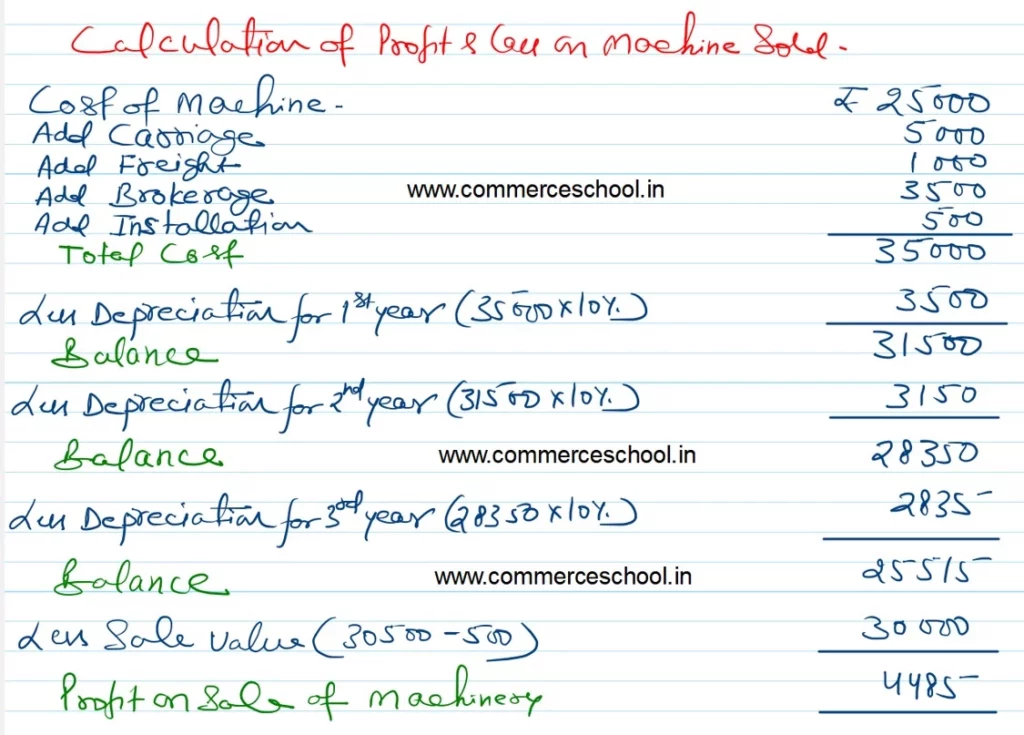 Calculation of Profit & Loss on Machine Sold.
Cost of Machine - ₹ 25000
Add Carriage 5000
Add Freight 1000
www.commerceschool.in
Add Brokerage 3500
Add Installation 500
Total Cost 35000
Less Depreciation for 1st year (35000 x 10%.) 3500
Balance 31500
Less Depreciation for 2nd year (31500 x 10%.) 3150
Balance 28350
www.commerceschool.in
Less Depreciation for 3rd year (28350 x 10%.) 2835
Balance 25515
www.commerceschool.in
Less Sale value (30500 - 500) 30000
Profit on Sale of Machinery 4485